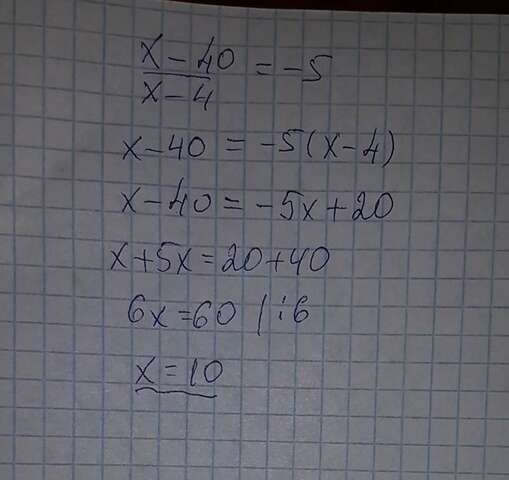 x-40
/
x-4 = -5
x-40 = -5(x-4)
x-40 = -5x+20
x+5x=20+40
6x=60 /:6
x=10